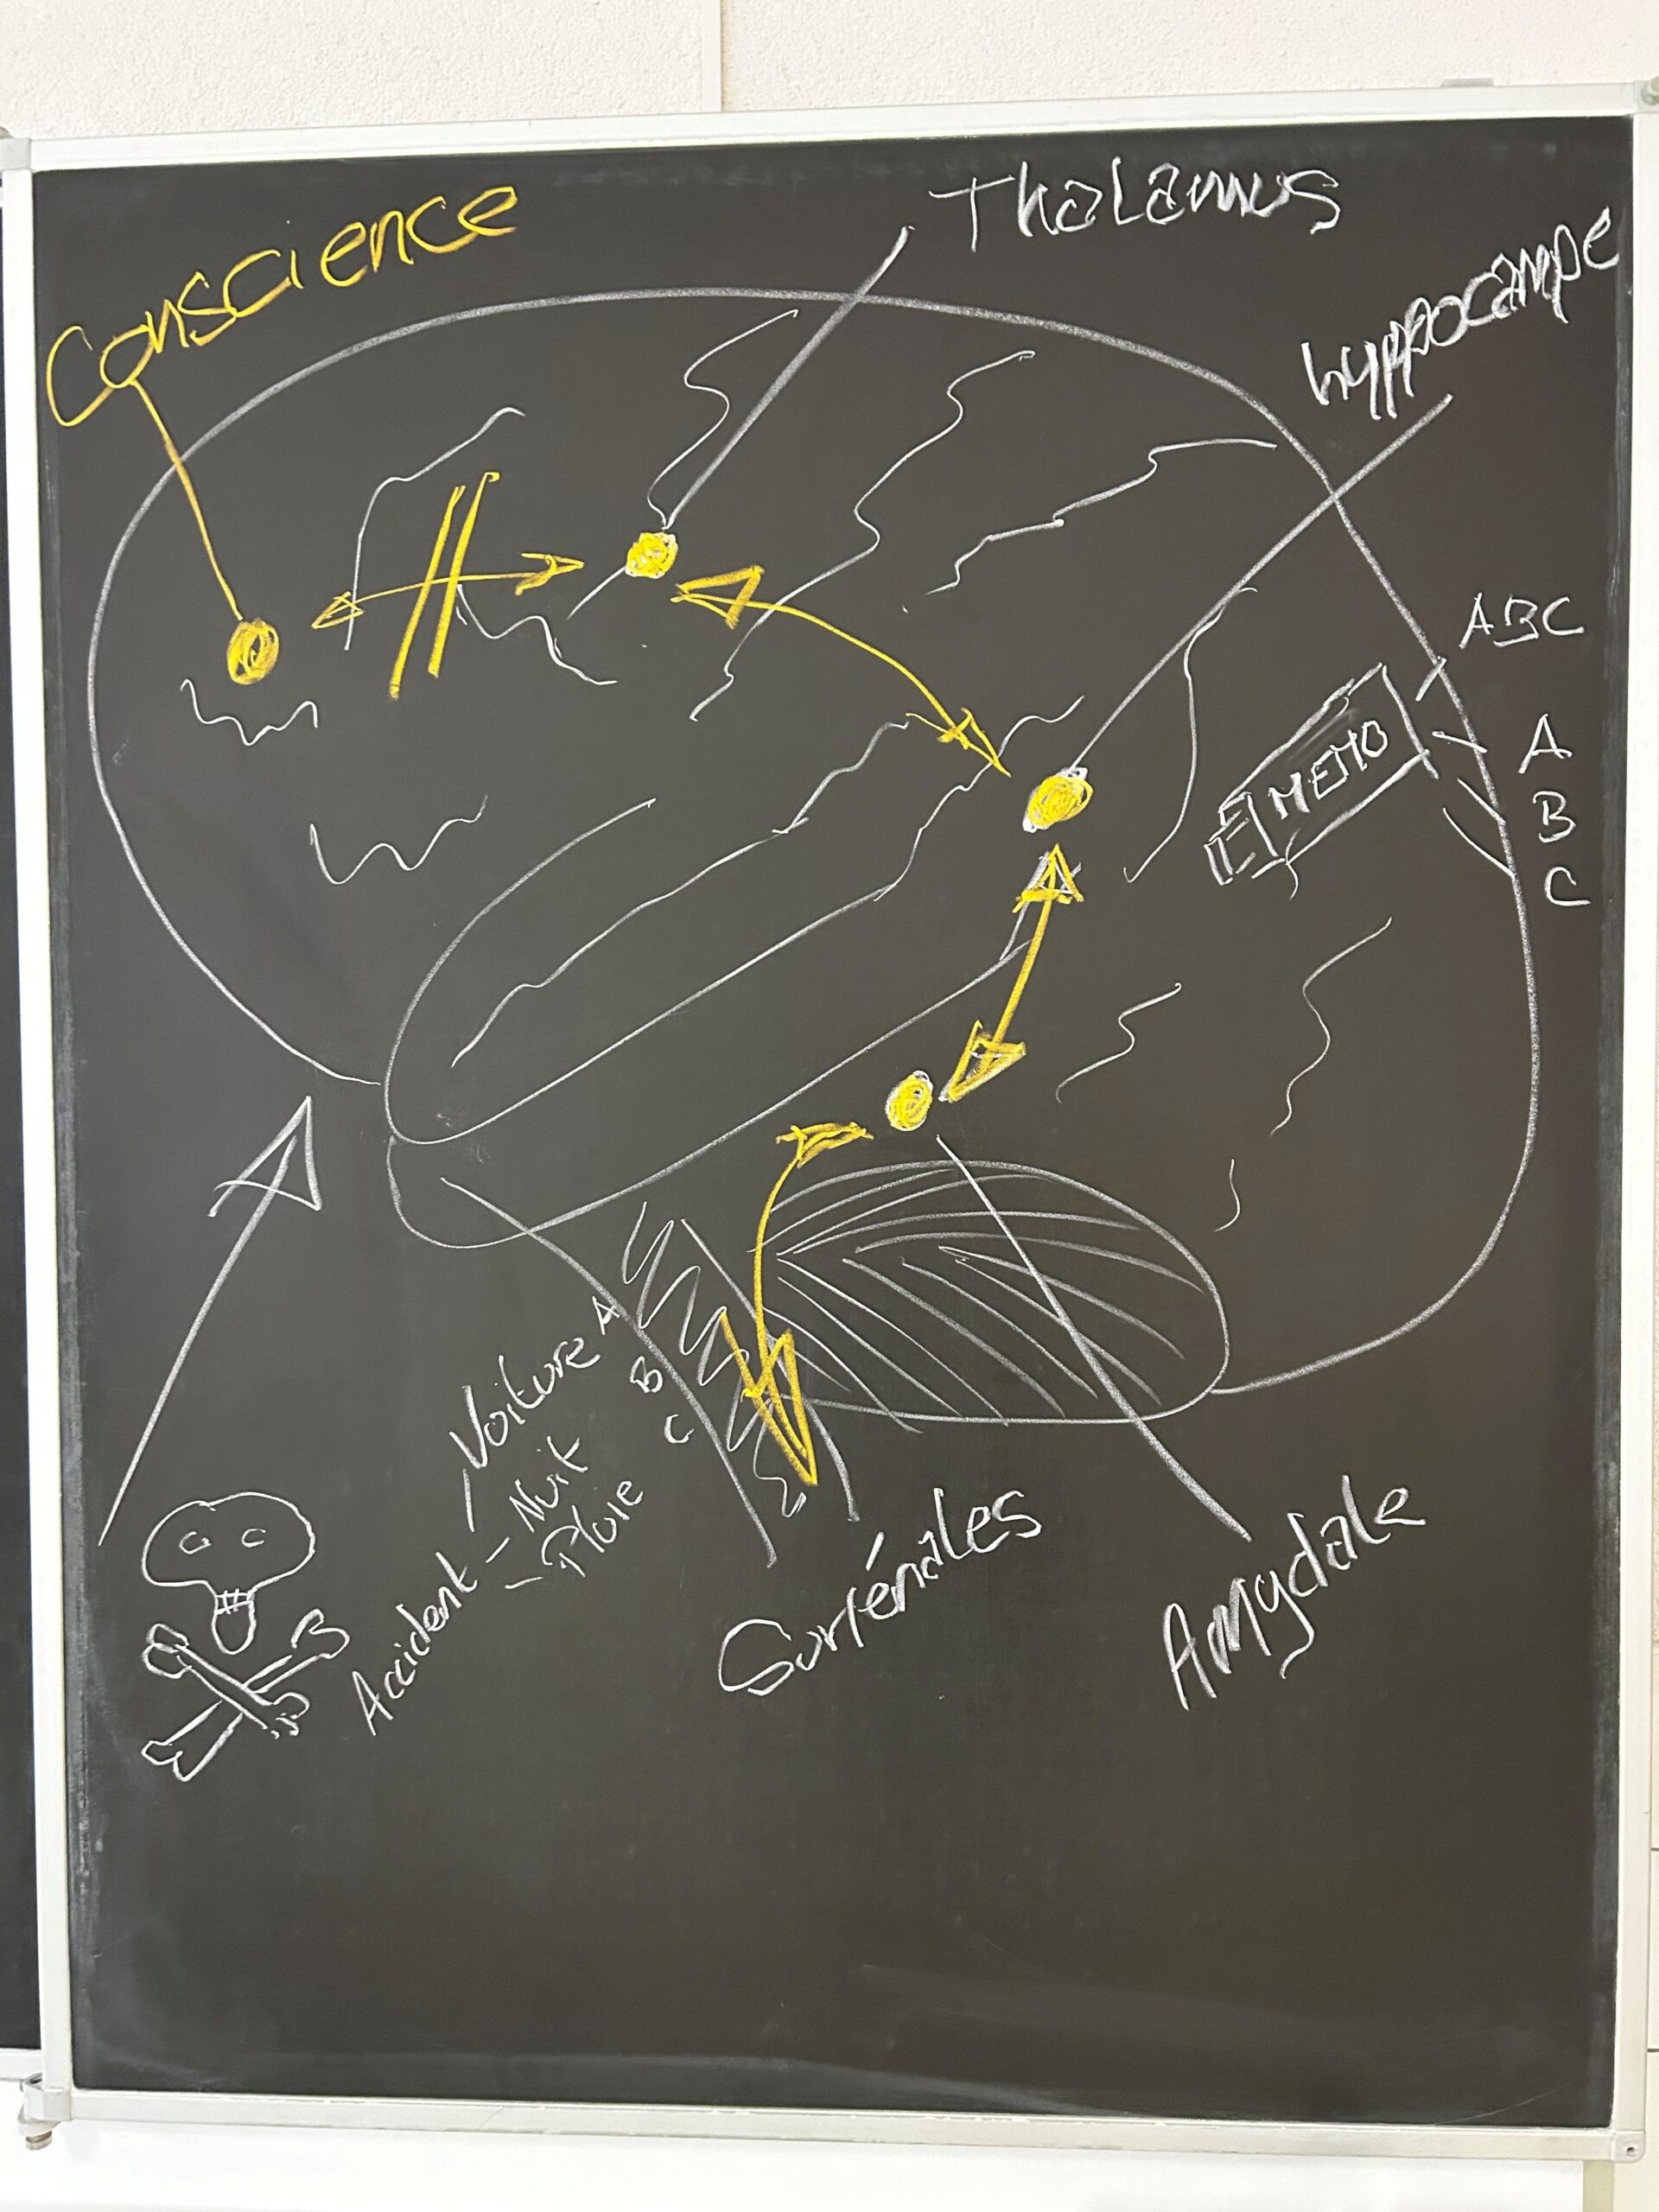 Conscience
Thalamus
hyppocampe
ABC
MEMO
A
B
C
Accident
Voiture A
Nuit B
Pluie C
Surrénales
Amygdale